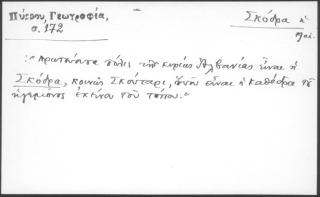 Πύρρου, Γεωγραφία,
σ. 172
Σκόδρα ἡ
"Πρωτεύουσα πόλις τῆς κυρίως Ἀλβανίας εἶναι ἡ
Σκόδρα, κοινῶς Σκούταρι, εἶναι ἡ καθέδρα τοῦ
ἡγεμόνος ἐκείνου τοῦ τόπου."